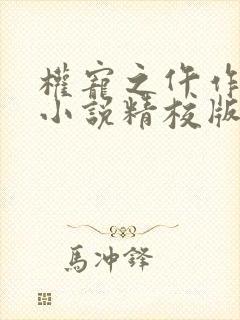 權寵之仵作
小說精校版
馬沖鋒